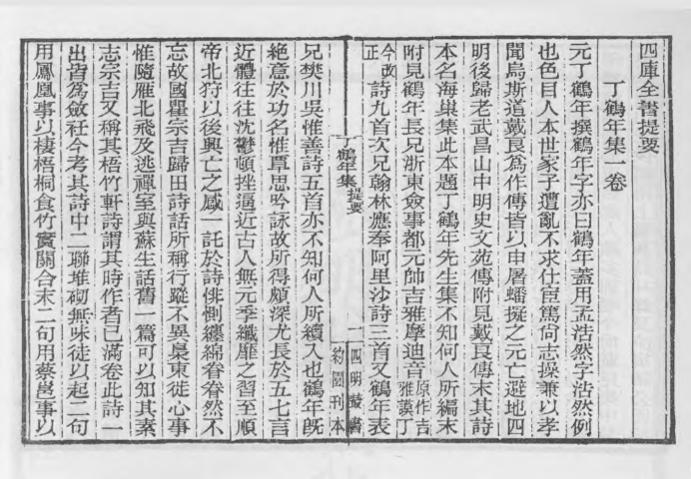 四庫全書提要
丁鶴年集一卷
元丁鶴年撰鶴年字亦曰鶴年蓋用孟浩然字浩然例
也色目人本世家子遭亂不求仕宦篤尙志操兼以孝
聞烏斯道戴良爲作傳皆以申屠蟠擬之元亡避地四
明後歸老武昌山中明史文苑傳附見戴良傳末其詩
本名海巢集此本題丁鶴年先生集不知何人所編末
附見鶴年長兄浙東僉事都元帥吉雅摩迪音原作吉雅謨丁
今改正詩九首次兄翰林應奉阿里沙詩三首又鶴年表
丁鶴年集 提要 一 四明叢書 約園刊本
兄樊川吳惟善詩五首亦不知何人所續入也鶴年旣
絶意於功名惟覃思吟詠故所得頗深尤長於五七言
近體往往沈鬱頓挫逼近古人無元季纖靡之習至順
帝北狩以後興亡之感一託於詩悱惻纏綿眷眷然不
忘故國瞿宗吉歸田詩話所稱行蹤不異梟東徙心事
惟隨雁北飛及逃禪室與蘇生話舊一篇可以知其素
志宗吉又稱其梧竹軒詩謂其時作者已滿卷此詩一
出皆爲斂衽今考其詩中二聯堆砌無味徒以起二句
用鳳凰事以棲梧桐食竹實關合末二句用蔡邕事以